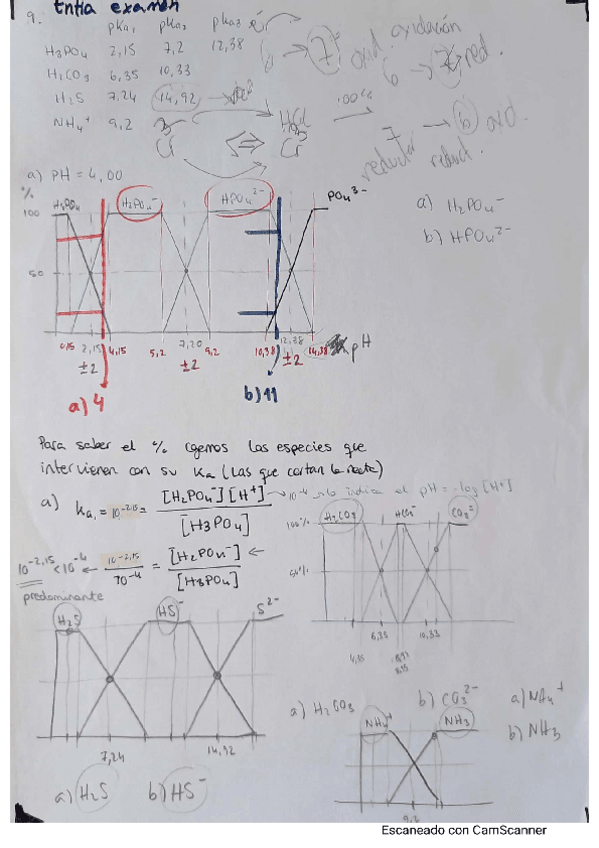 9. Entra examen
pKa₁ pKa₂ pKa₃
H₃PO₄ 2,15 7,2 12,38
H₂CO₃ 6,35 10,33
H₂S 7,24 14,92
NH₄⁺ 9,2
7 oxid oxidación
6 → red.
100%
Cr Cr
7 → 6 oxid.
reductor reduct.
a) pH = 4,00
%
H₃PO₄ H₂PO₄⁻ HPO₄²⁻ PO₄³⁻
100
50
0,15 2,15 4,15 5,2 7,20 9,2 10,38 12,38 14,38 pH
±2 ±2 ±2
a) 4 b) 11
a) H₂PO₄⁻
b) HPO₄²⁻
Para saber el % cogemos las especies que
intervienen con su Ka (las que cortan la recta)
a) Ka₁ = 10^-2,15 = [H₂PO₄⁻][H⁺] / [H₃PO₄]
→ 10^-4 → lo indica el pH = -log[H⁺]
10^-2,15 < 10^-4 ← 10^-2,15 / 10^-4 = [H₂PO₄⁻] / [H₃PO₄] ←
predominante
H₂S HS⁻ S²⁻
7,24 14,92
a) H₂S b) HS⁻
100% H₂CO₃ HCO₃⁻ CO₃²⁻
50%
4,35 6,35 10,33
8,35
a) H₂CO₃ b) CO₃²⁻
NH₄⁺ NH₃
9,2
a) NH₄⁺
b) NH₃
Escaneado con CamScanner